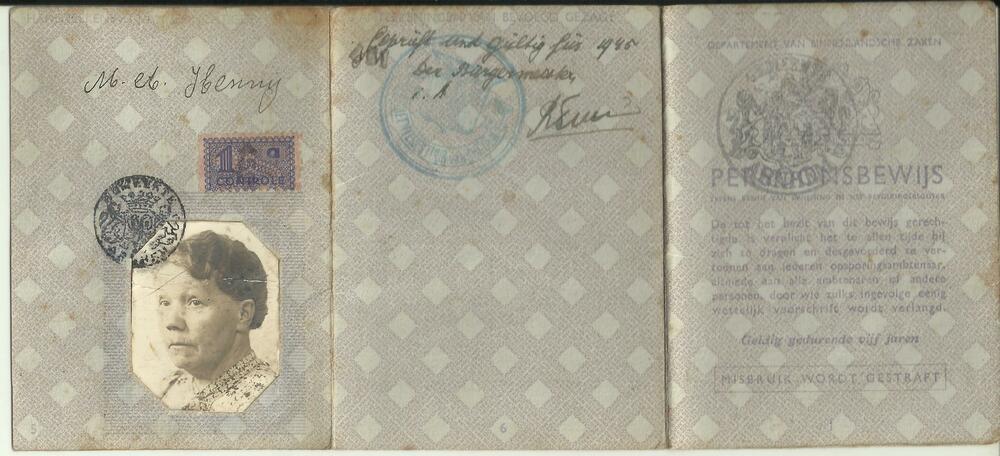 M. A. Henny
1
CONTROLE
5
Geprüft und Gültig für 1945
Der Bürgermeister
i. A
6
DEPARTEMENT VAN BINNENLANDSCHE ZAKEN
PERSOONSBEWIJS
De tot het bezit van dit bewijs gerech-
tigde is verplicht het te allen tijde bij
zich te dragen en desgevorderd te ver-
toonen aan iederen opsporingsambtenaar,
alsmede aan alle ambtenaren of andere
personen, door wie zulks ingevolge eenig
wettelijk voorschrift wordt verlangd.
Geldig gedurende vijf jaren
MISBRUIK WORDT GESTRAFT
1